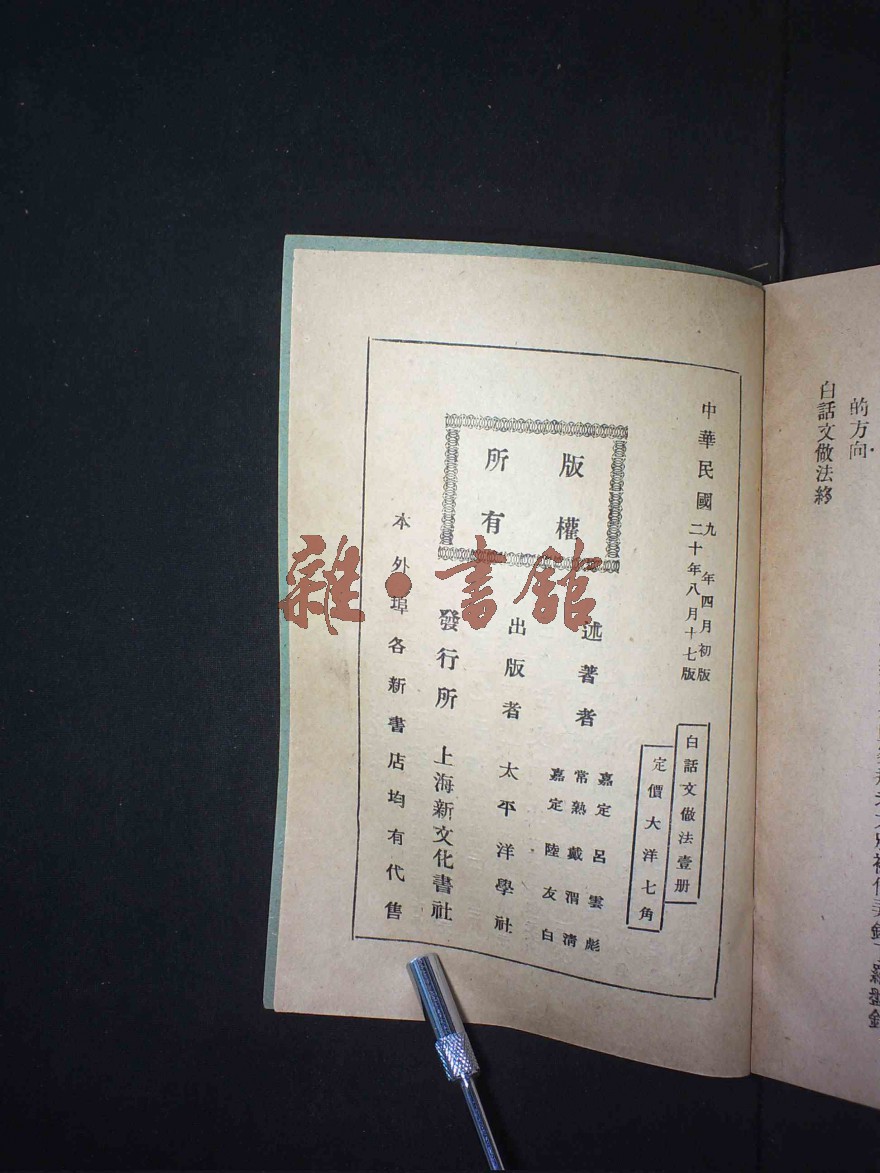 的方向
白話文做法終
中華民國九年四月初版
二十年八月十七版
白話文做法壹册
定價大洋七角
版權
所有
述著者
嘉定呂雲彪
常熟戴渭清
嘉定陸友白
出版者 太平洋學社
發行所 上海新文化書社
本外埠各新書店均有代售
雜·書館